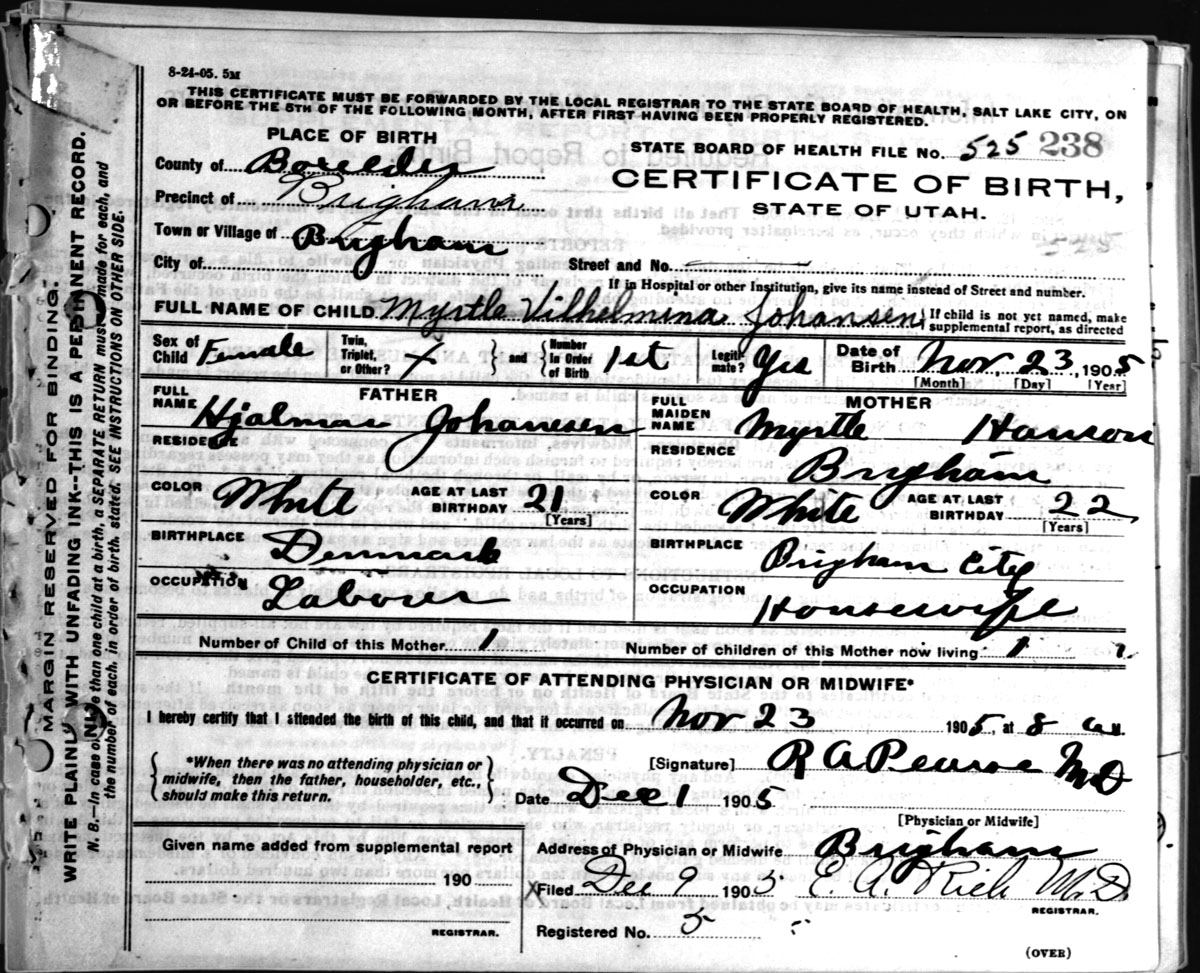 8-24-05. 5M
THIS CERTIFICATE MUST BE FORWARDED BY THE LOCAL REGISTRAR TO THE STATE BOARD OF HEALTH, SALT LAKE CITY, ON
OR BEFORE THE 5TH OF THE FOLLOWING MONTH, AFTER FIRST HAVING BEEN PROPERLY REGISTERED.
PLACE OF BIRTH
County of Boxelder
Precinct of Brigham
Town or Village of Brigham
City of
STATE BOARD OF HEALTH FILE No. 525 238
CERTIFICATE OF BIRTH,
STATE OF UTAH.
Street and No.
If in Hospital or other Institution, give its name instead of Street and number.
FULL NAME OF CHILD Myrtle Vilhelmina Johansen
If child is not yet named, make
supplemental report, as directed
Sex of Child Female Twin, Triplet, or Other? and Number In Order of Birth 1st Legitimate? Yes Date of Birth Nov. 23, 1905
[Month] [Day] [Year]
FATHER
FULL NAME Hjalmar Johansen
RESIDENCE
COLOR White AGE AT LAST BIRTHDAY 21
[Years]
BIRTHPLACE Denmark
OCCUPATION Laborer
MOTHER
FULL MAIDEN NAME Myrtle Hanson
RESIDENCE Brigham
COLOR White AGE AT LAST BIRTHDAY 22
[Years]
BIRTHPLACE Brigham City
OCCUPATION Housewife
Number of Child of this Mother 1 Number of children of this Mother now living 1
CERTIFICATE OF ATTENDING PHYSICIAN OR MIDWIFE*
I hereby certify that I attended the birth of this child, and that it occurred on Nov 23 1905, at 8 am
*When there was no attending physician or
midwife, then the father, householder, etc.,
should make this return.
[Signature] R A Pearse MD
Date Dec 1 1905
[Physician or Midwife]
Given name added from supplemental report
190
REGISTRAR.
Address of Physician or Midwife Brigham
Filed Dec 9 1905 E. A. Rich M.D.
REGISTRAR.
Registered No. 5
(OVER)
MARGIN RESERVED FOR BINDING.
WRITE PLAINLY WITH UNFADING INK--THIS IS A PERMANENT RECORD.
N. B.—In case of more than one child at a birth, a SEPARATE RETURN must be made for each, and
the number of each, in order of birth, stated. SEE INSTRUCTIONS ON OTHER SIDE.